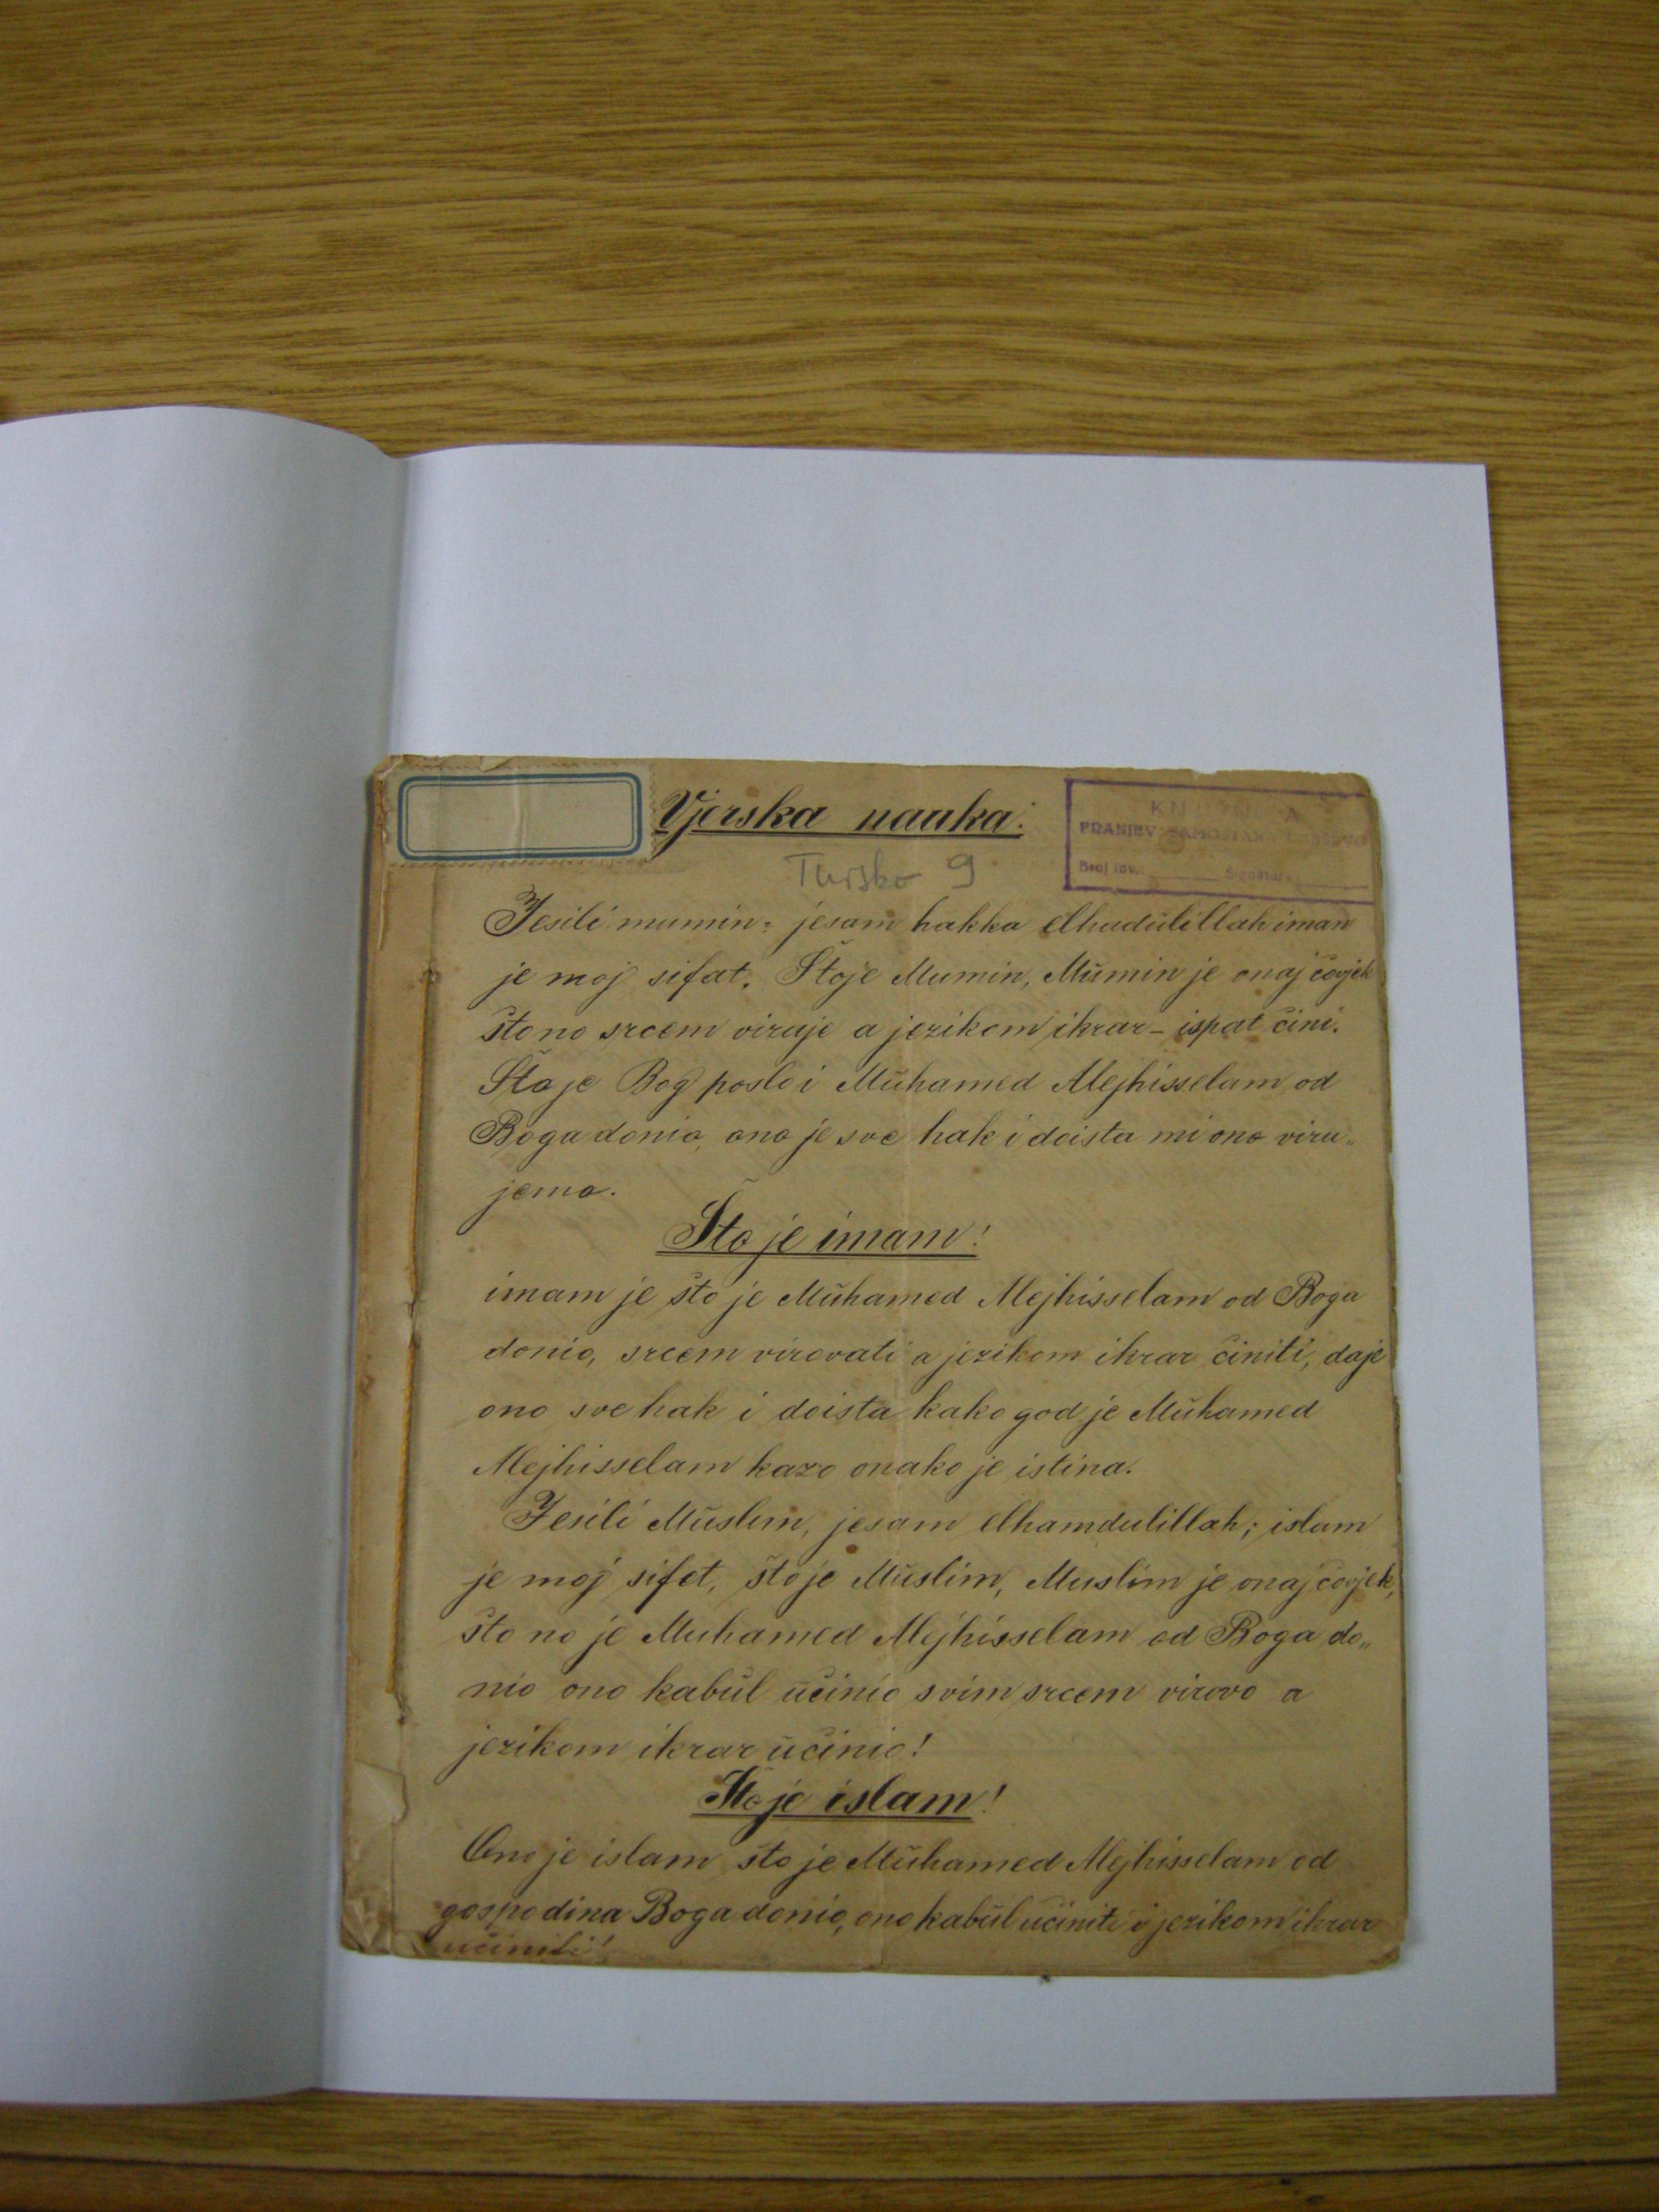 Vjerska nauka:
Tursko 9
FRANJEV. SAMOSTANA
Broj inv.: Signatura
Jesili mumin: jesam hakka elhadŭlillah iman
je moj sifat. Što je Mumin, Mŭmin je onaj čovjek
što no srcem viruje a jezikom ikrar - ispat čini.
Šta je Bog poslo i Mŭhamed Alejhisselam od
Boga donio, ono je sve hak i doista mi ono viru„
jemo.
Što je imam!
imam je što je Mŭhamed Alejhisselam od Boga
donio, srcem virovati a jezikom ikrar činiti, daje
ono sve hak i doista kako god je Mŭhamed
Alejhisselam kazo onako je istina.
Jesili Mŭslim, jesam elhamdulillah; islam
je moj sifet, što je Mŭslim, Muslim je onaj čovjek,
što no je Muhamed Alejhisselam od Boga do„
nio ono kabŭl ŭčinio svim srcem virovo a
jezikom ikrar ŭčinio!
Što je islam!
Ono je islam što je Mŭhamed Alejhisselam od
gospodina Boga donio, ono kabŭl učiniti i jezikom ikrar
učiniti!